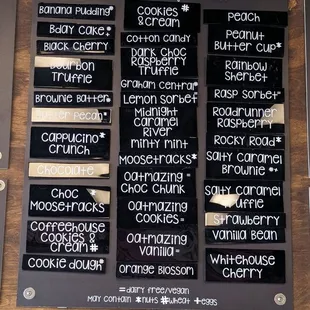 Banana Pudding*
Bday Cake*
Black Cherry
Bourbon
Truffle
Brownie Batter*
Butter Pecan*
Cappucino*
Crunch
Chocolate
Choc *
Moosetracks
Coffeehouse
Cookies &
Cream#
Cookie Dough*
Cookies #
& Cream
Cotton Candy
Dark Choc
Raspberry
Truffle
Graham Central*
Lemon Sorbet=
Midnight
Caramel
River
Minty Mint
Moosetracks*
Oatmazing=
Choc Chunk
Oatmazing
Cookies=
Oatmazing
Vanilla=
Orange Blossom
Peach
Peanut
Butter Cup*
Rainbow
Sherbet
Rasp Sorbet=
Roadrunner
Raspberry
Rocky Road*
Salty Caramel
Brownie *+
Salty Caramel
Truffle
Strawberry
Vanilla Bean
Whitehouse
Cherry
=Dairy Free/Vegan
May Contain *Nuts #Wheat +Eggs